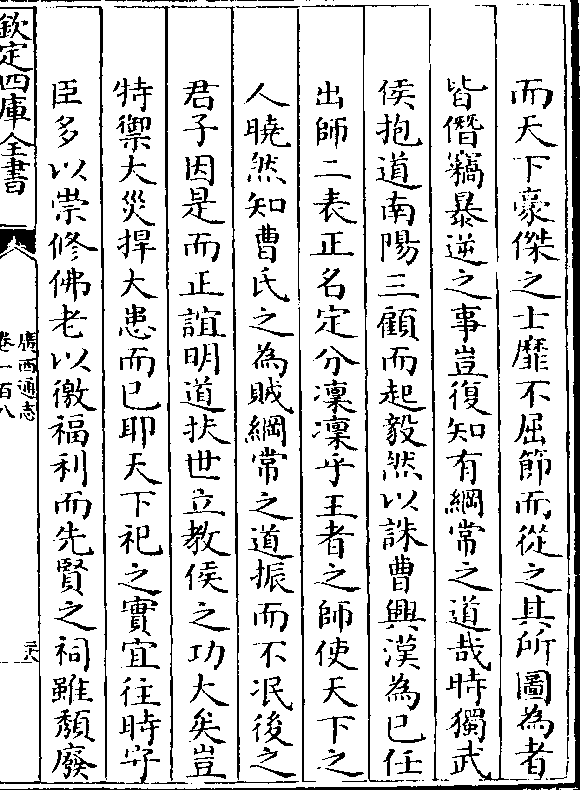 而天下豪傑之士靡不屈節而從之其所圖為者
皆僭竊暴逆之事豈復知有綱常之道哉時獨武
侯抱道南陽三顧而起毅然以誅曹興漢為已任
出師二表正名定分凜凜乎王者之師使天下之
人曉然知曹氏之為賊綱常之道振而不泯後之
君子因是而正誼明道扶世立教侯之功大矣豈
特禦大災捍大患而已耶天下祀之實宜往時守
臣多以崇修佛老以徼福利而先賢之祠雖頽廢
欽定四庫全書
廣西通志
卷一百八